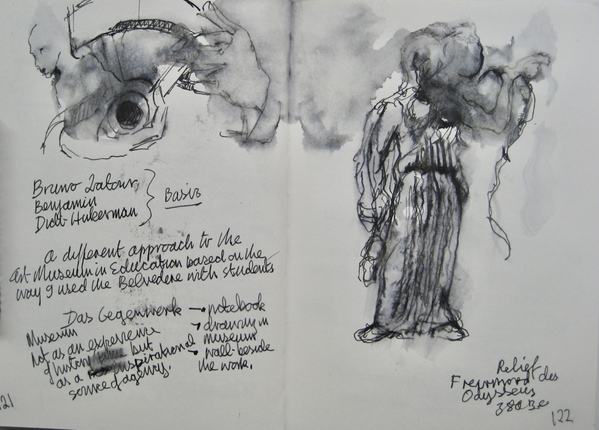 Bruno Latour
Benjamin
Didi-Huberman
Basis
a different approach to the
Art Museum in Education based on the
way I used the Belvedere with students
Das Gegenwerk → notebook
Museum → drawing in
not as an experience museum
but → wall-beside
as a inspirational the work.
source of agency.
Relief
des
Odysseus
380 Bc
121
122